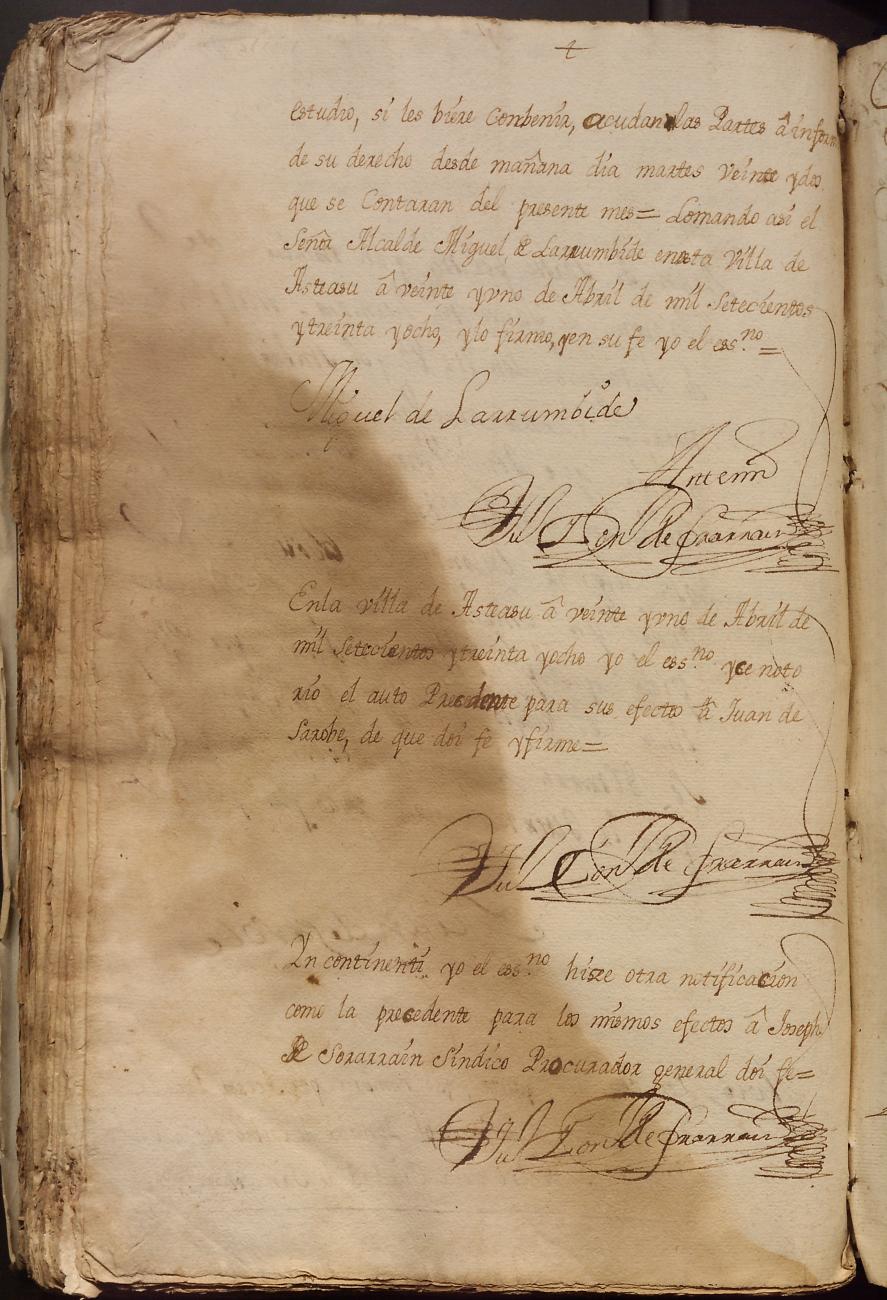 estudio, si les biere Conbenir, acudan las Partes â inform
de su derecho desde mañana dia martes veinte ydos
que se Contaran del presente mes= Lomando asi el
Señor Alcalde Miguel de Larrumbide enesta Villa de
Asteasu â veinte yvno de Abril de mil Setecientos
ytreinta yocho, ylo firmo, yen su fe yo el ess.no=
Miguel de Larrumbide
Antemi
Enla villa de Asteasu â veinte yvno de Abril de
mil Setecientos ytreinta yocho yo el ess.no yce noto
rio el auto Precedente para sus efectos â Juan de
Sarobe, de que doi fe yfirme=
In continenti yo el ess.no hisze otra notificacion
como la precedente para los mismos efectos â Joseph
de Sorarrain Sindico Procurador general doi fe=